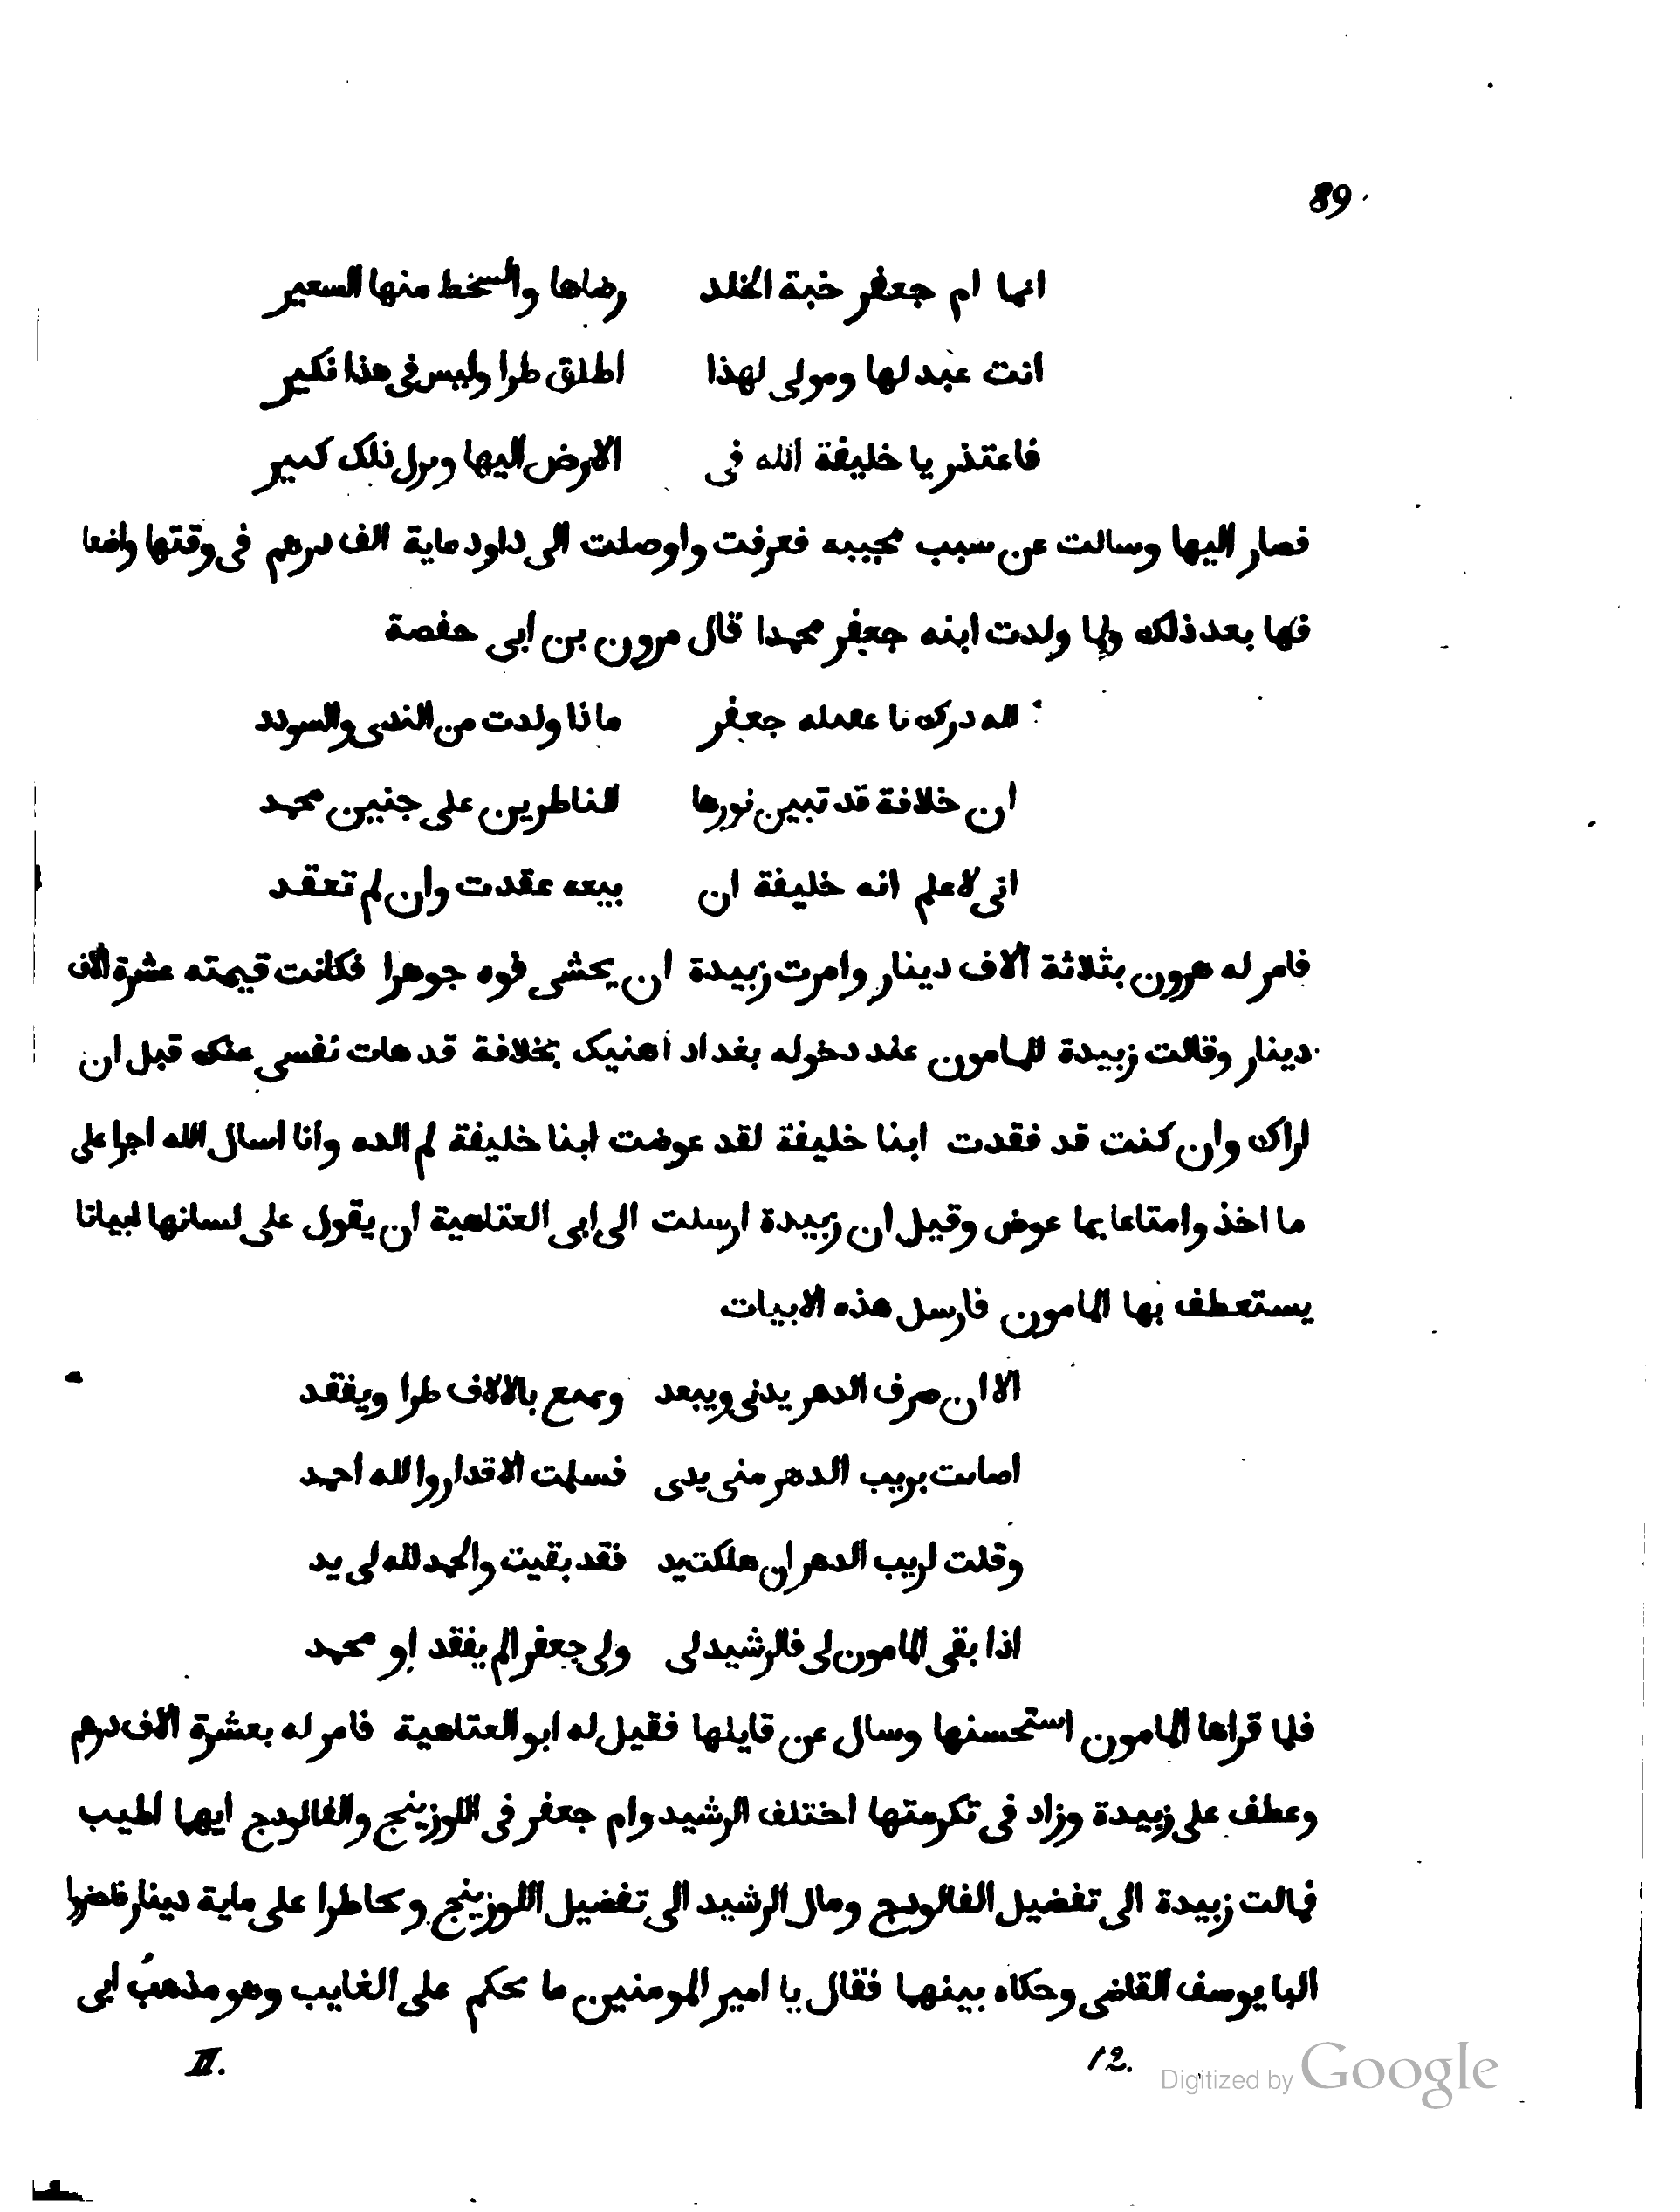 89
انما ام جعفر خبة الخلد رضاها والسخط منها السعير
انت عبد لها ومولى لهذا الخلق طرا وليس فى هذا نكير
فاعتذر يا خليفة الله فى الارض اليها وترك ذلك كبير
فصار اليها وسالت عن سبب مجيبه فعرفت واوصلت الى داود ماية الف درهم فى وقتها واضعا
فها بعد ذلك ولما ولدت ابنه جعفر محمدا قال مرون بن ابى حفصة
لله درك يا عقيله جعفر ماذا ولدت من الندى والسودد
ان خلافة قد تبين نورها للناطرين على جنين محمد
انى لاعلم انه خليفة ان بيعه عقدت وان لم تعقد
فامر له هرون بثلاثة الاف دينار وامرت زبيدة ان يحشى فوه جوهرا فكانت قيمته عشرة الاف
دينار وقالت زبيدة للمامون عند دخوله بغداد اهنيك بخلافة قد هات نفسى عنك قبل ان
اراك وان كنت قد فقدت ابنا خليفة لقد عوضت ابنا خليفة لم الده وانا اسال الله اجرا على
ما اخذ وامتاعا بما عوض وقيل ان زبيدة ارسلت الى ابى العتاهية ان يقول على لسانها ابياتا
يستعطف بها المامون فارسل هذه الابيات
الا ان صرف الدهر يدنى ويبعد ويمتع بالالاف طرا ويفقد
اصابت بريب الدهر منى يدى فسلمت الاقدار والله احمد
وقلت لريب الدهر ان هلكت يد فقد بقيت والحمد لله لى يد
اذا بقى المامون لى فالرشيد لى ولى جعفر الم يفقد او محمد
فلما قراها المامون استحسنها وسال عن قايلها فقيل له ابو العتاهية فامر له بعشرة الاف درهم
وعطف على زبيدة وزاد فى تكرمتها اختلف الرشيد وام جعفر فى اللوزينج والفالودج ايهما اطيب
فمالت زبيدة الى تفضيل الفالودج ومال الرشيد الى تفضيل اللوزينج وتخاطرا على ماية دينار فاحضرا
البا يوسف القاضى وحكاه بينهما فقال يا امير المومنين ما يحكم على الغايب وهو مذهب ابى
II. 12.
Digitized by Google